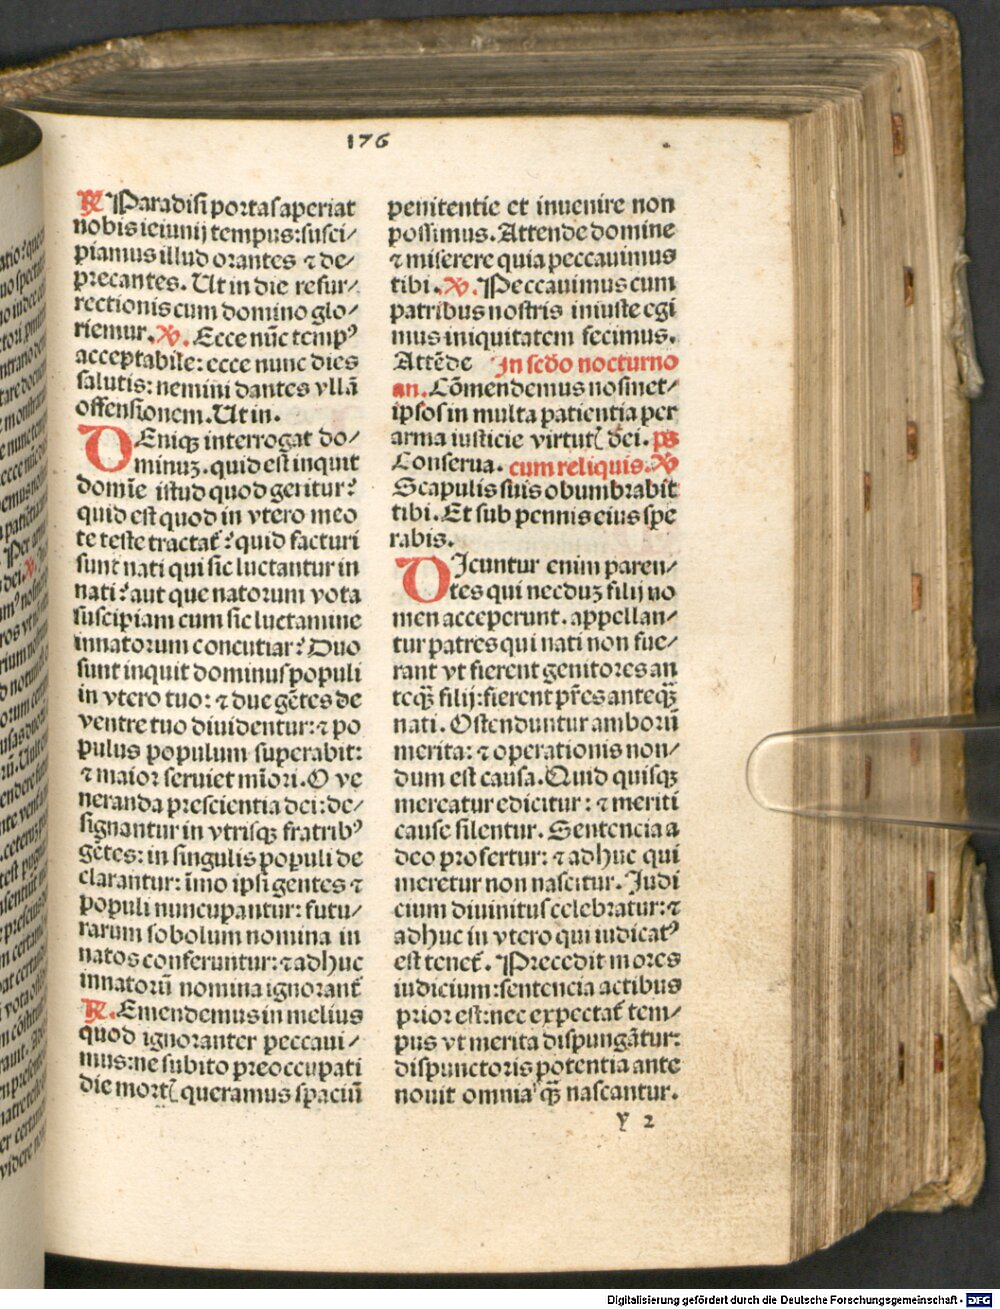 176
℟ Paradisi portas aperiat
nobis ieiunij tempus: susci/
piamus illud orantes ⁊ de/
precantes. Ut in die resur/
rectionis cum domino glo/
riemur. ℣. Ecce nūc tempꝰ
acceptabile: ecce nunc dies
salutis: nemini dantes vllā
offensionem. Ut in.
DEniqꝫ interrogat do/
minuꝫ. quid est inquit
domīe istud quod geritur?
quid est quod in vtero meo
te teste tractat᷑? quid facturi
sunt nati qui sic luctantur in
nati? aut que natorum vota
suscipiam cum sic luctamine
innatorum concutiar? Duo
sunt inquit dominus populi
in vtero tuo: ⁊ due gētes de
ventre tuo diuidentur: ⁊ po
pulus populum superabit:
⁊ maior seruiet mīori. O ve
neranda prescientia dei: de/
signantur in vtrisqꝫ fratribꝰ
gētes: in singulis populi de
clarantur: īmo ipsi gentes ⁊
populi nuncupantur: futu/
rarum sobolum nomina in
natos conferuntur: ⁊ adhuc
innatorū nomina ignorant᷑
℟. Emendemus in melius
quod ignoranter peccaui/
mus: ne subito preoccupati
die mortꝭ queramus spaciū
penitentie et inuenire non
possimus. Attende domine
⁊ miserere quia peccauimus
tibi. ℣. Peccauimus cum
patribus nostris iniuste egi
mus iniquitatem fecimus.
Attēde In scďo nocturno
an. Cōmendemus nosmet/
ipsos in multa patientia per
arma iusticie virtutꝭ dei. ps
Conserua. cum reliquis. ℣
Scapulis suis obumbrabit
tibi. Et sub pennis eius spe
rabis.
DIcuntur enim paren/
tes qui necduꝫ filij no
men acceperunt. appellan/
tur patres qui nati non fue/
rant vt fierent genitores an
teqꝫ̄ filij: fierent pr̄es anteqꝫ̄
nati. Ostenduntur amborū
merita: ⁊ operationis non/
dum est causa. Quid quisqꝫ
mereatur edicitur: ⁊ meriti
cause silentur. Sentencia a
deo profertur: ⁊ adhuc qui
meretur non nascitur. Judi
cium diuinitus celebratur: ⁊
adhuc in vtero qui iudicatꝰ
est tenet᷑. Precedit mores
iudicium: sentencia actibus
prior est: nec expectat᷑ tem/
pus vt merita dispungātur:
dispunctoris potentia ante
nouit omnia qꝫ̄ nascantur.
y 2
Digitalisierung gefördert durch die Deutsche Forschungsgemeinschaft - DFG